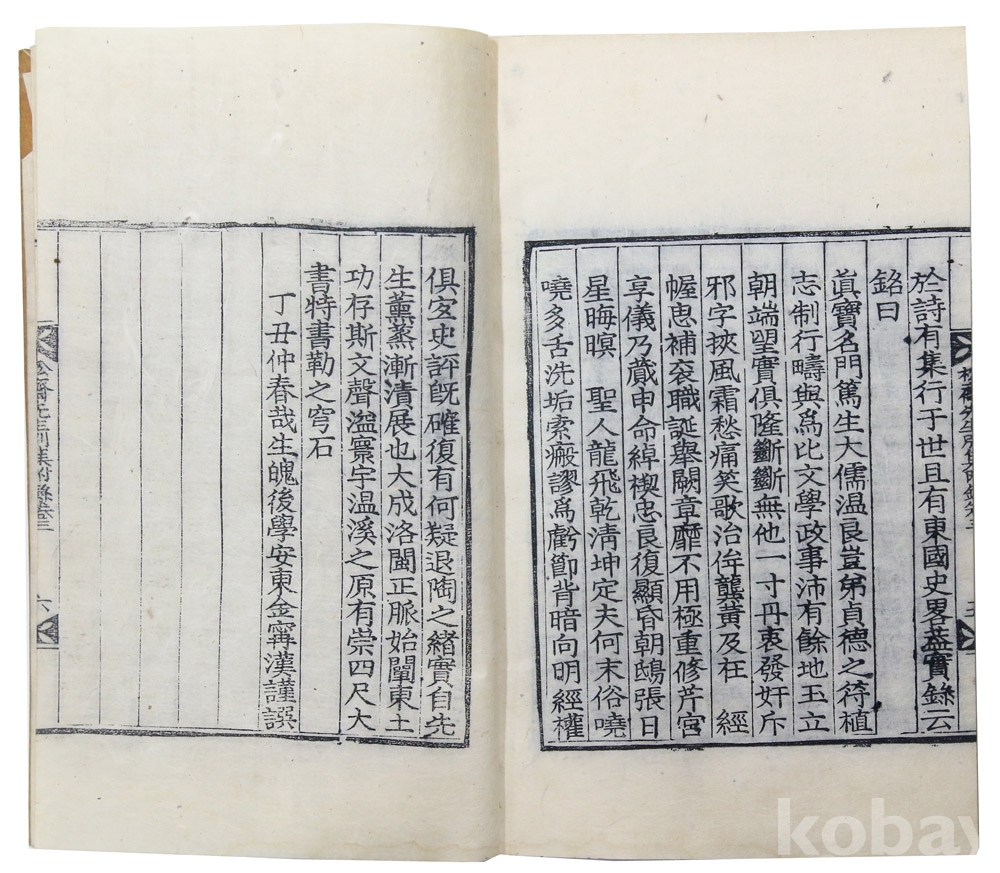 於詩有集行于世且有東國史畧盖實錄云
銘曰
眞寶名門篤生大儒温良豈弟貞德之符植
志制行疇與爲比文學政事沛有餘地玉立
朝端望實俱隆斷斷無他一寸丹衷發奸斥
邪字挾風霜愁痛笑歌治侔龔黃及在 經
幄忠補袞職誕舉闕章靡不用極重修芹宮
享儀乃蕆申命綽楔忠良復顯昏朝鴟張日
星晦暝 聖人龍飛乾淸坤定夫何末俗嘵
嘵多舌洗垢索瘢謬爲虧節背暗向明經權
俱安史評旣確復有何疑退陶之緖實自先
生薰蒸漸漬展也大成洛閩正脈始闡東土
功存斯文聲溢寰宇温溪之原有崇四尺大
書特書勒之穹石
丁丑仲春哉生魄後學安東金甯漢謹譔
六
kobay